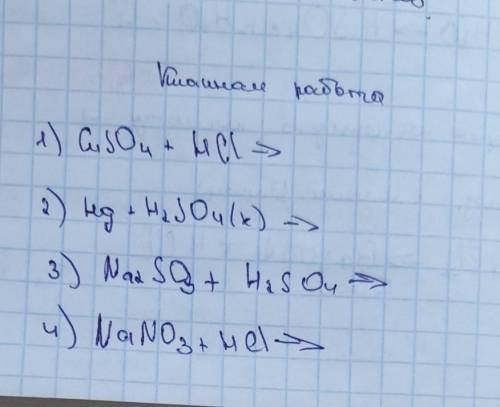 работа
1) CuSO4 + HCl →
2) Hg + H2SO4(к) →
3) Na2SO3 + H2SO4 →
4) NaNO3 + HCl →